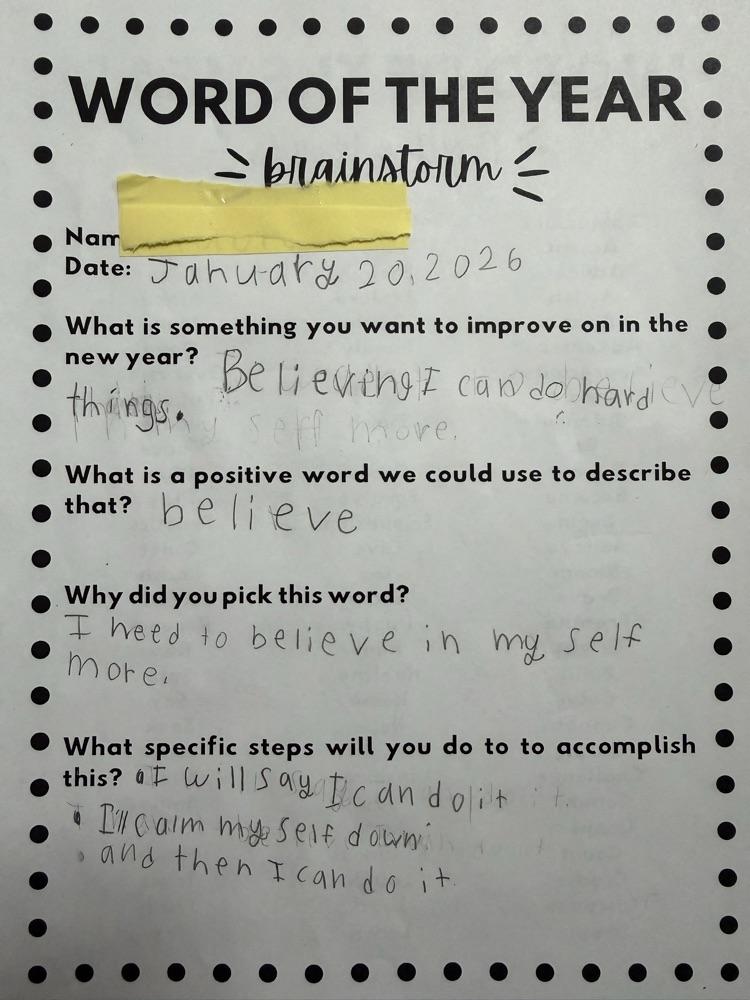 WORD OF THE YEAR
brainstorm
Nam
Date: January 20, 2026
What is something you want to improve on in the
new year? Believing I can do hard
things.
my self more.
What is a positive word we could use to describe
that? believe
Why did you pick this word?
I need to believe in my self
more.
What specific steps will you do to to accomplish
this? I will say I can do it
• I'll calm my self down
• and then I can do it.